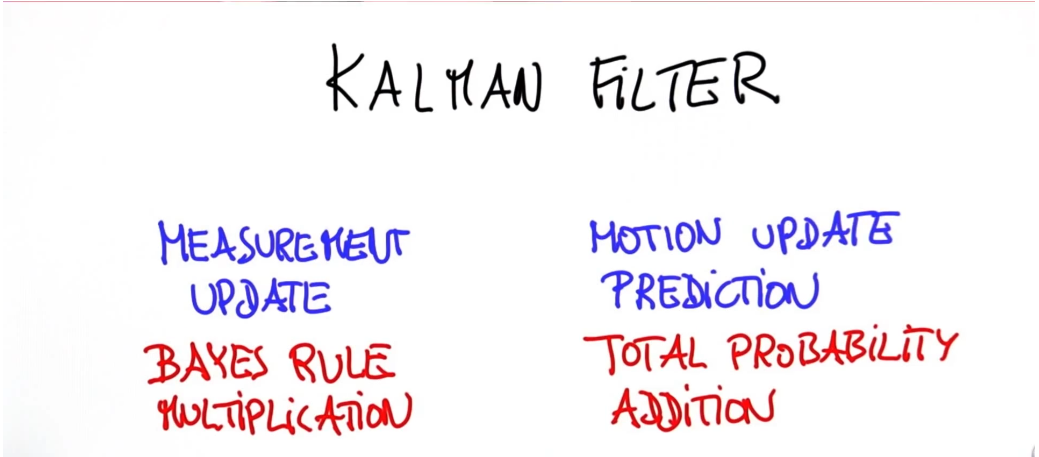 KALMAN FILTER
MEASUREMENT
UPDATE
BAYES RULE
MULTIPLICATION
MOTION UPDATE
PREDICTION
TOTAL PROBABILITY
ADDITION